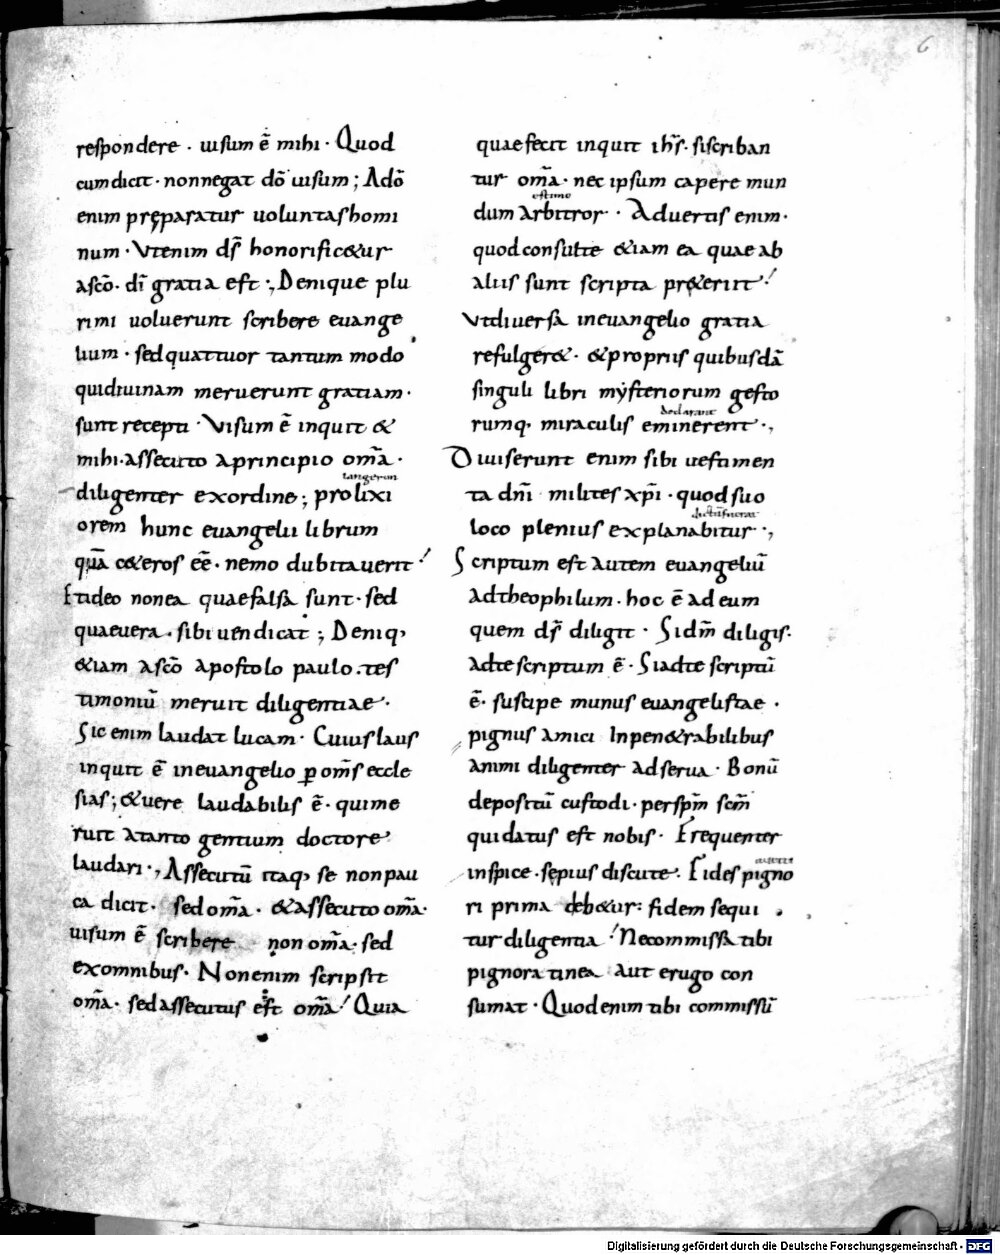 6
respondere · uisum ē mihi · Quod
cum dicit · non negat dō uisum ; Adō
enim pręparatur uoluntas homi
num · Vt enim d̄s honorific&ur
a scō · dī gratia est ·, Denique plu
rimi uoluerunt scribere euange
lium · sed quattuor tantum modo
qui diuinam meruerunt gratiam ·
sunt recepti · Visum ē inquit &
mihi · assecuto a principio om̄a ·
tangeron
diligenter ex ordine ; prolixi
orem hunc euangelii librum
quā c&eros eē · nemo dubitauerit !
Et ideo non ea quae falsa sunt · sed
quae uera · sibi uendicat ; Deniq,
&iam a scō apostolo paulo · tes
timoniū meruit diligentiae ·
Sic enim laudat lucam · Cuius laus
inquit ē in euangelio ꝑ om̄s eccle
sias ; & uere laudabilis ē · qui me
ruit a tanto gentium doctore
laudari ·, Assecutū itaq, se non pau
ca dicit · sed om̄a · & assecuto om̄a ·
uisum ē scribere non om̄a · sed
ex omnibus · Non enim scripsit
om̄a · sed assecutus est om̄a ! Quia
quae fecit inquit ih̄s · si scriban
tur om̄a · nec ipsum capere mun
estimo
dum arbitror · Aduertis enim ·
quod consulte &iam ea quae ab
aliis sunt scripta pr&erit !
Vt diuersa in euangelio gratia
refulger& · & propriis quibusdā
singuli libri mẏsteriorum gesto
declarant
rumq, miraculis eminerent ·,
Diuiserunt enim sibi uestimen
ta dn̄i milites xp̄i · quod suo
loco plenius explanabitur ·,
Scriptum est autem euangeliū
ad theophilum · hoc ē ad eum
quem d̄s diligit · Si dm̄ diligis ·
ad te scriptum ē · Si ad te scriptū
ē · suscipe munus euangelistae ·
pignus amici In pen&rabilibus
animi diligenter adserua · Bonū
depositū custodi · per sp̄m scm̄
qui datus est nobis · Frequenter
inspice · sępius discute · Fides pigno
ri prima deb&ur : fidem sequi
tur diligentia ! Ne commissa tibi
pignora tinea aut erugo con
sumat · Quod enim tibi commissū
Digitalisierung gefördert durch die Deutsche Forschungsgemeinschaft - DFG